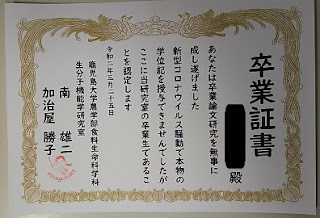 卒業証書
殿
あなたは卒業論文研究を無事に
成し遂げました
新型コロナウイルス騒動で本物の
学位記を授与できませんでしたが
ここに当研究室の卒業生であるこ
とを認定します
令和二年三月二十五日
鹿児島大学農学部食料生命科学科
生分子機能学研究室
南 雄二
加治屋 勝子